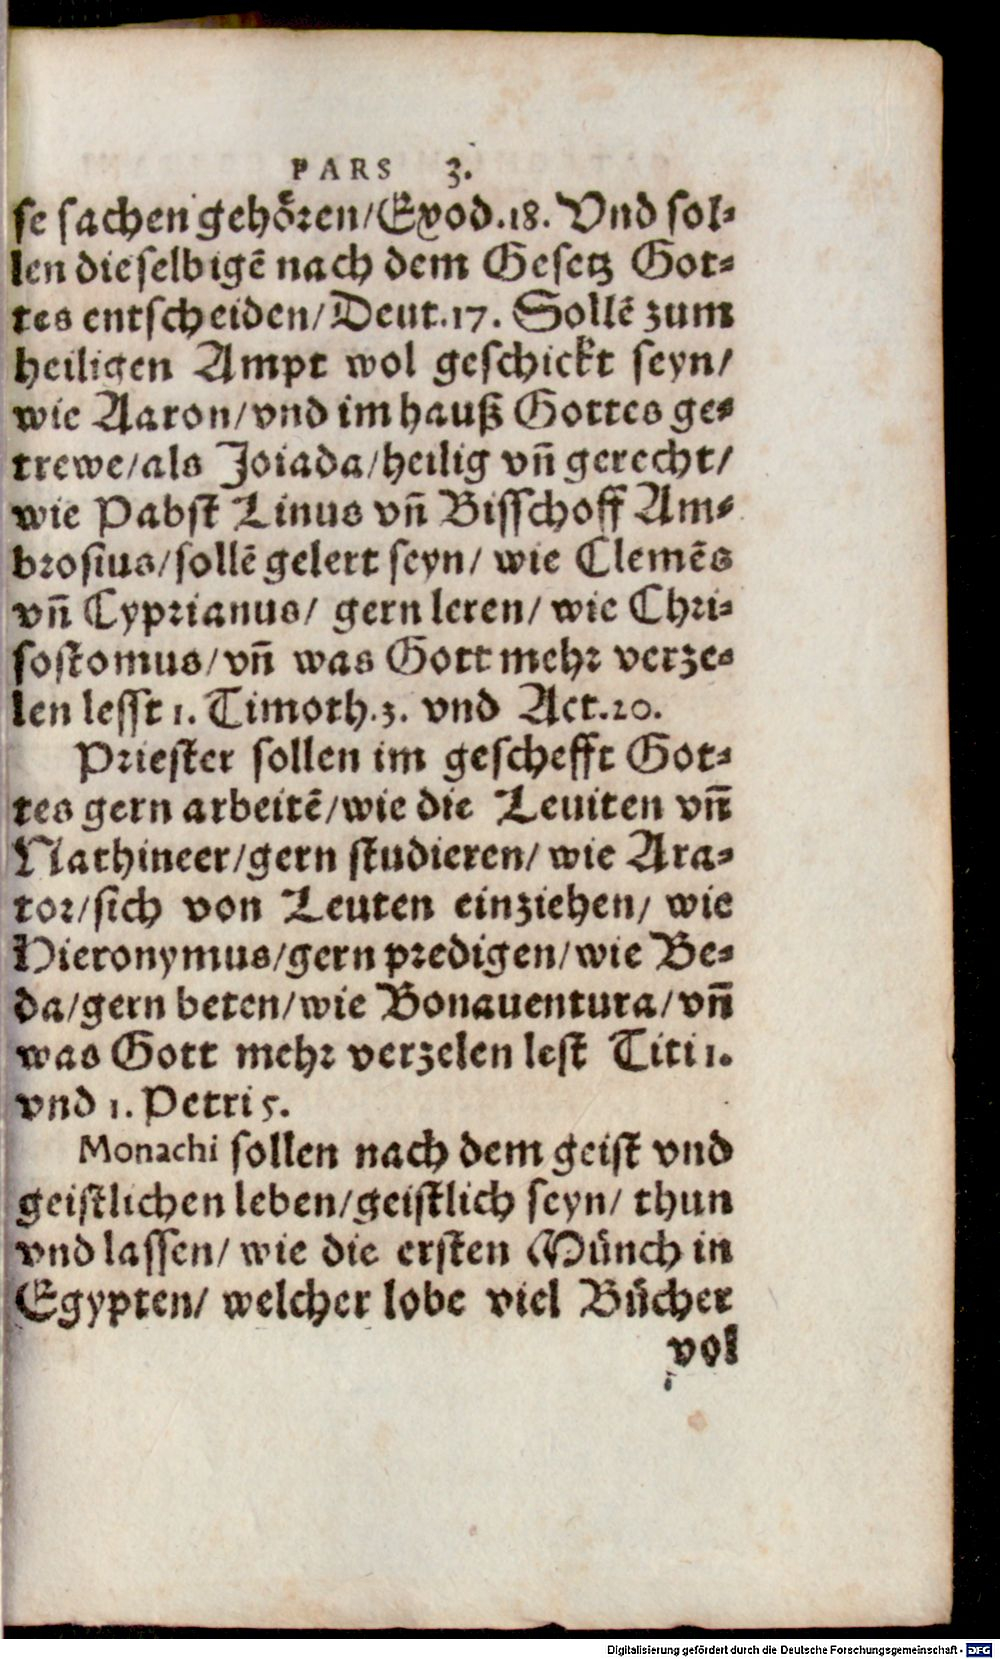 PARS 3.
se sachen gehoͤren/Exod.18. Vnd sol-
len dieselbigē nach dem Gesetz Got-
tes entscheiden/Deut.17. Sollē zum
heiligen Ampt wol geschickt seyn/
wie Aaron/vnd im hauß Gottes ge-
trewe/als Joiada/heilig vñ gerecht/
wie Pabst Linus vñ Bisschoff Am-
brosius/sollē gelert seyn/ wie Clemēs
vñ Cyprianus/ gern leren/ wie Chri-
sostomus/vñ was Gott mehr verze-
len lesst 1. Timoth.3. vnd Act.20.
Priester sollen im geschefft Got-
tes gern arbeitē/wie die Leuiten vñ
Nathineer/gern studieren/ wie Ara-
tor/sich von Leuten einziehen/ wie
Hieronymus/gern predigen/wie Be-
da/gern beten/wie Bonauentura/vñ
was Gott mehr verzelen lest Titi 1.
vnd 1. Petri 5.
Monachi sollen nach dem geist vnd
geistlichen leben/geistlich seyn/ thun
vnd lassen/ wie die ersten Münch in
Egypten/ welcher lobe viel Bücher
vol
Digitalisierung gefördert durch die Deutsche Forschungsgemeinschaft - DFG